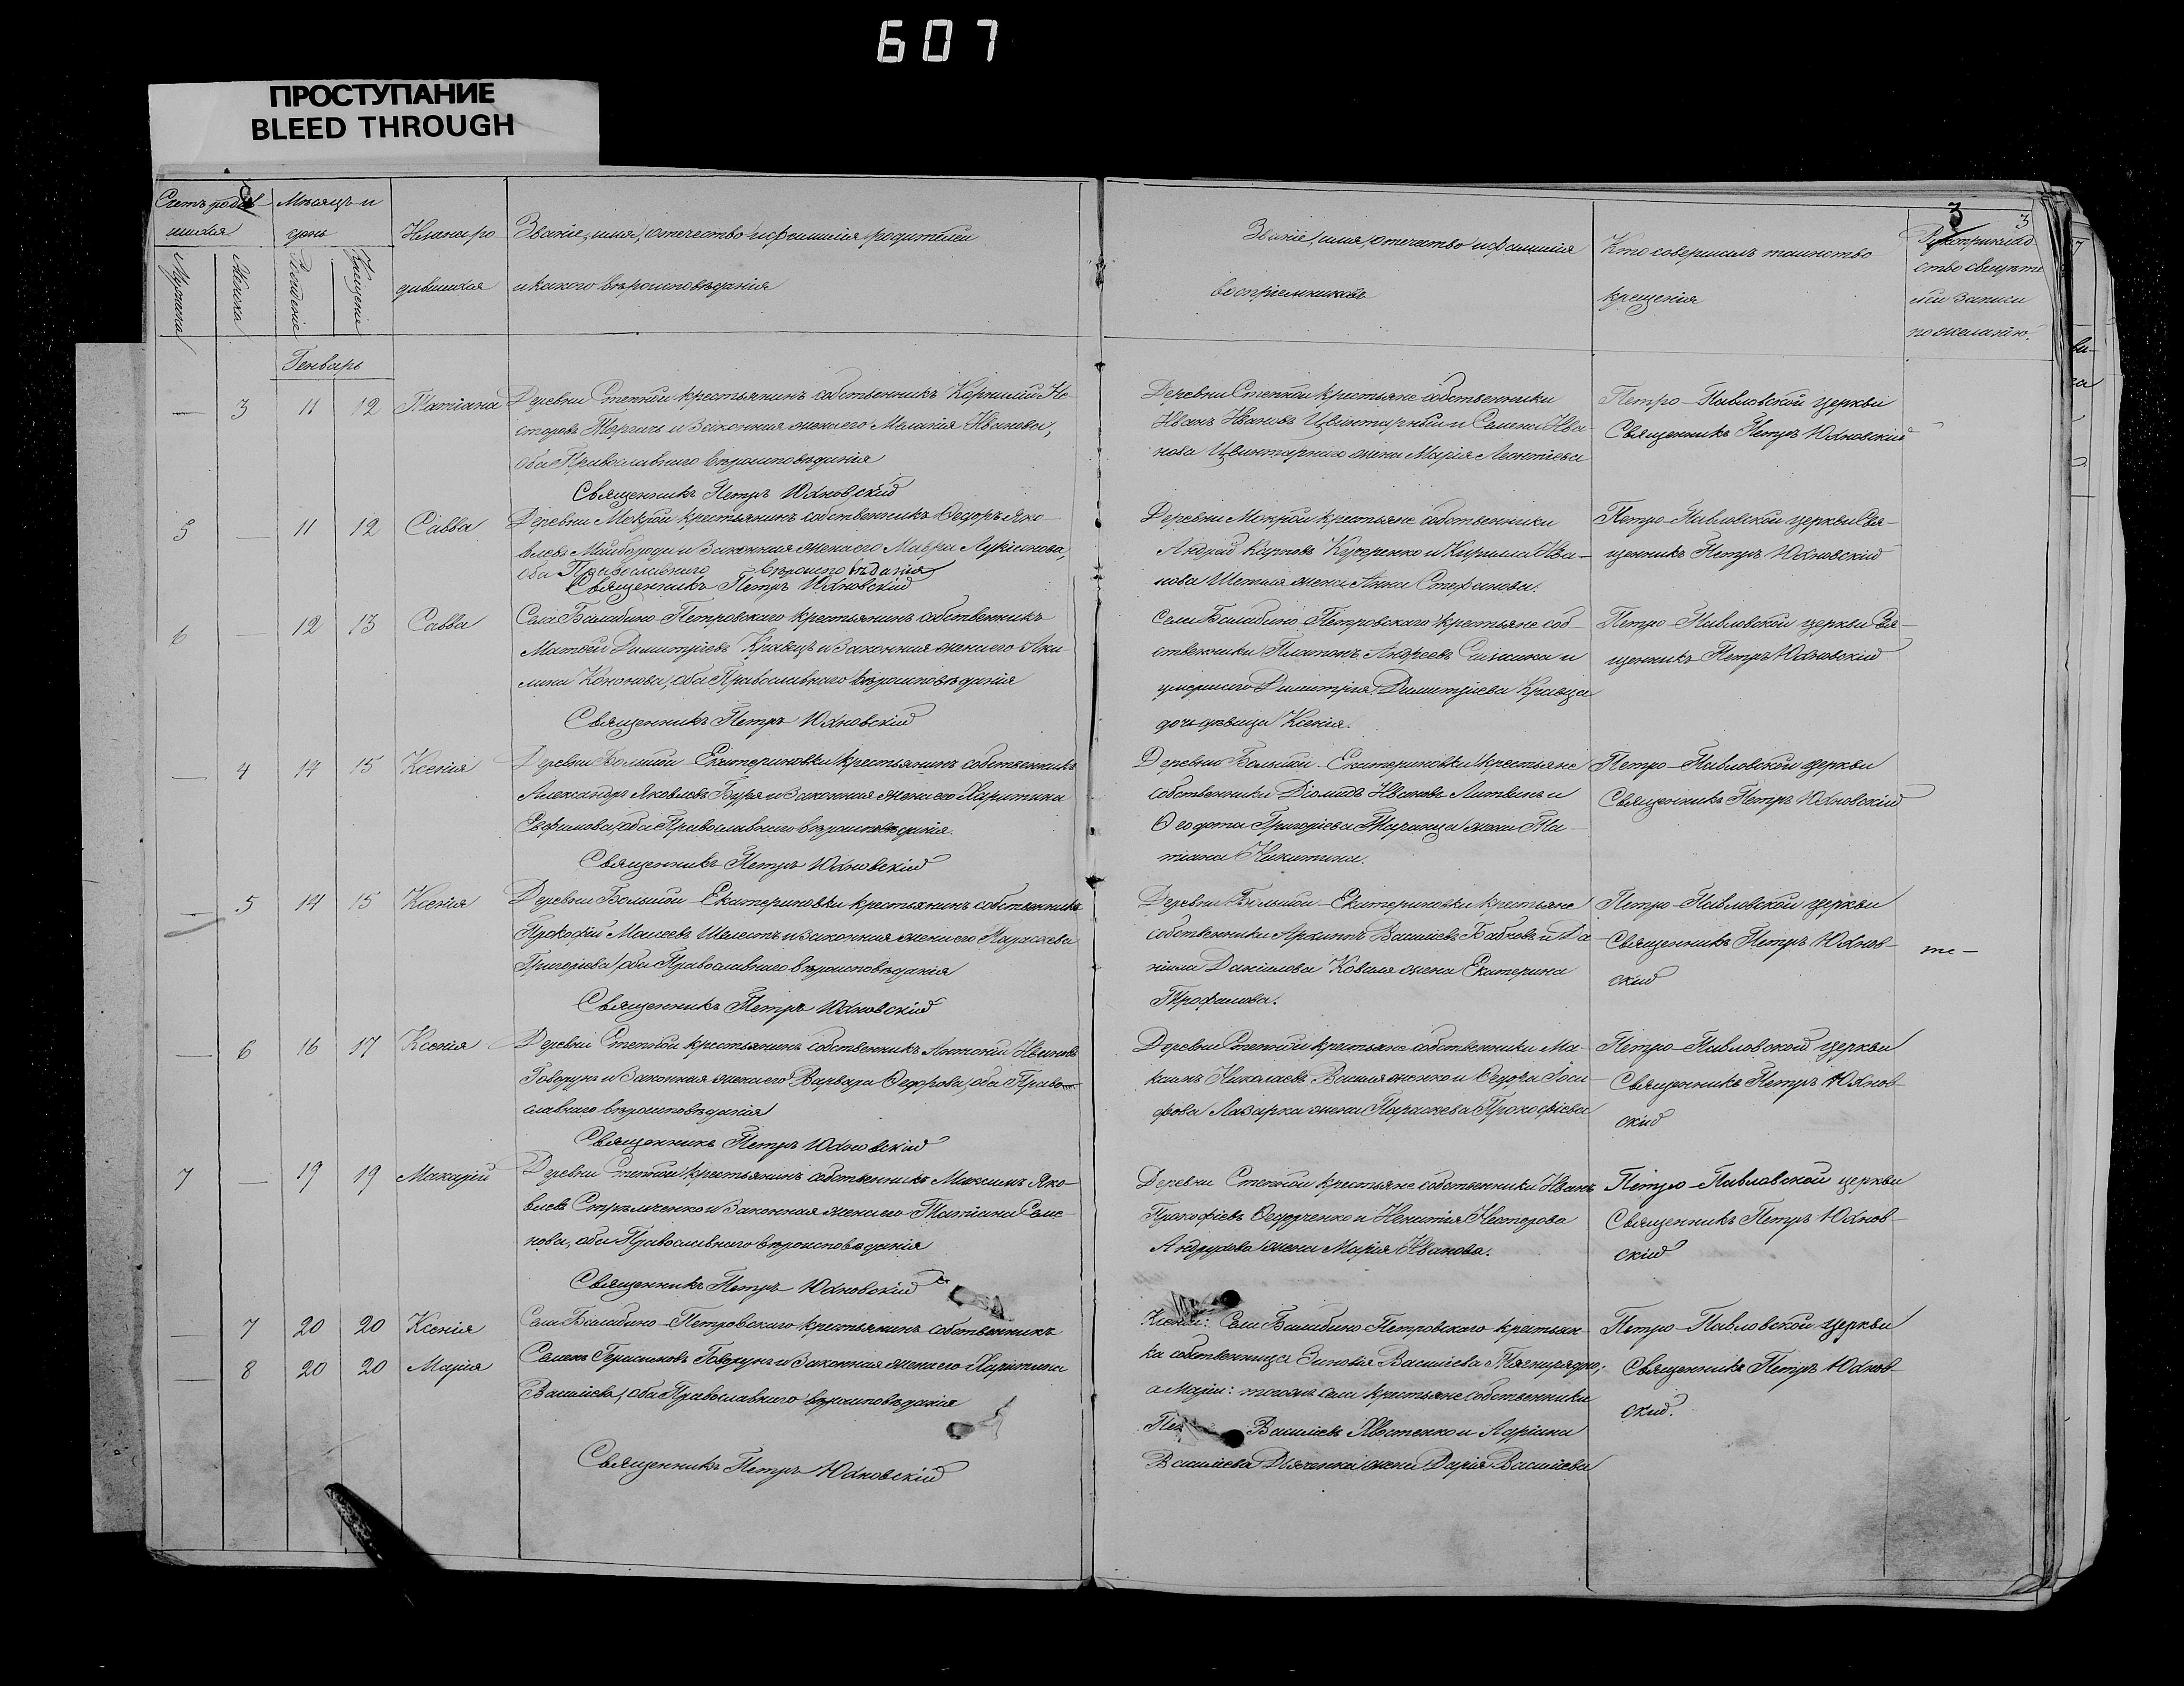 607
ПРОСТУПАНИЕ
BLEED THROUGH
Счетъ родив-
шихся
Мѣсяцъ и
день
Имена ро
дившихся
Званіе, имя, отечество и фамилія родителей
и какого вѣроисповѣданія
Мужеска
Женска
Рожденіе
Крещеніе
Званіе, имя, отечество и фамилія
воспріемниковъ
Кто совершилъ таинство
крещенія
3
3
Рукоприклад
ство свидѣте
лей записи
по желанію.
Генварь
— 3 11 12 Татіана
Деревни Степной крестьянинъ собственникъ Корнилій Не-
сторовъ и законная жена его Меланія Иванова,
оба Православнаго вѣроисповѣданія
Священникъ Петръ Юхновскій
Деревни Степной крестьяне собственники
Иванъ Ивановъ Цвинтарный и Семена Ива-
нова Цвинтарнаго жена Марія Леонтіева
Петро-Павловской церкви
Священникъ Петръ Юхновскій
5 — 11 12 Савва
Деревни Мокрой крестьянинъ собственникъ Ѳедоръ Яко-
влевъ Майборода и законная жена его Мавра Лукіянова,
оба Православнаго вѣроисповѣданія
Священникъ Петръ Юхновскій
Деревни Мокрой крестьяне собственники
Андрей Карповъ Кучеренко и Кирилла Ива-
нова жена Анна Стефанова.
Петро-Павловской церкви Свя-
щенникъ Петръ Юхновскій
6 — 12 13 Савва
Села Балабино-Петровскаго крестьянинъ собственникъ
Матѳей Димитріевъ Кравецъ и законная жена его Аки-
лина Кононова, оба Православнаго вѣроисповѣданія
Священникъ Петръ Юхновскій
Села Балабино-Петровскаго крестьяне соб-
ственники Платонъ Андреевъ и
умершаго Димитрія Димитріева Кравца
дочь дѣвица Ксенія.
Петро-Павловской церкви Свя-
щенникъ Петръ Юхновскій
— 4 14 15 Ксенія
Деревни Большой-Екатериновки крестьянинъ собственникъ
Александръ Яковлевъ Буря и законная жена его Харитина
Евфимова, оба Православнаго вѣроисповѣданія.
Священникъ Петръ Юхновскій
Деревни Большой-Екатериновки крестьяне
собственники Діомидъ Ивановъ Литвинъ и
Ѳеодота Григоріева Таранца жена Та-
тіана Никитина.
Петро-Павловской церкви
Священникъ Петръ Юхновскій
— 5 14 15 Ксенія
Деревни Большой-Екатериновки крестьянинъ собственникъ
Прокофій Моисеевъ Шелестъ и законная жена его Параскева
Григоріева, оба Православнаго вѣроисповѣданія
Священникъ Петръ Юхновскій
Деревни Большой-Екатериновки крестьяне
собственники Архипъ Василіевъ Бабковъ и Да-
ніила Данилова Коваля жена Екатерина
Трофимова.
Петро-Павловской церкви
Священникъ Петръ Юхнов-
скій
— 6 16 17 Ксенія
Деревни Степной крестьянинъ собственникъ Антоній Ивановъ
Говорунъ и законная жена его Варвара Ѳедорова, оба Право-
славнаго вѣроисповѣданія
Священникъ Петръ Юхновскій
Деревни Степной крестьяне собственники Ма-
ксимъ Николаевъ Василяженко и Ѳедора Іоси-
фова Лазарка жена Параскева Прокофіева
Петро-Павловской церкви
Священникъ Петръ Юхнов-
скій
7 — 19 19 Макарій
Деревни Степной крестьянинъ собственникъ Максимъ Яко-
влевъ Стрѣльченко и законная жена его Татіана Семе-
нова, оба Православнаго вѣроисповѣданія
Священникъ Петръ Юхновскій
Деревни Степной крестьяне собственники Иванъ
Прокофіевъ Ѳедорченко и Игнатія Несторова
Андрусова жена Марія Иванова.
Петро-Павловской церкви
Священникъ Петръ Юхнов-
скій
— 7 20 20 Ксенія
— 8 20 20 Марія
Села Балабино-Петровскаго крестьянинъ собственникъ
Семенъ Герасимовъ Говорунъ и законная жена его Харитина
Василіева, оба Православнаго вѣроисповѣданія
Священникъ Петръ Юхновскій
Ксеніи: Села Балабино Петровскаго крестьян-
ка собственница Зиновія Василіева
а Маріи: тогоже села крестьяне собственники
Василіевъ Хвостенко и Адріана
Василіева Дяченка жена Дарія Василіева
Петро-Павловской церкви
Священникъ Петръ Юхнов-
скій.